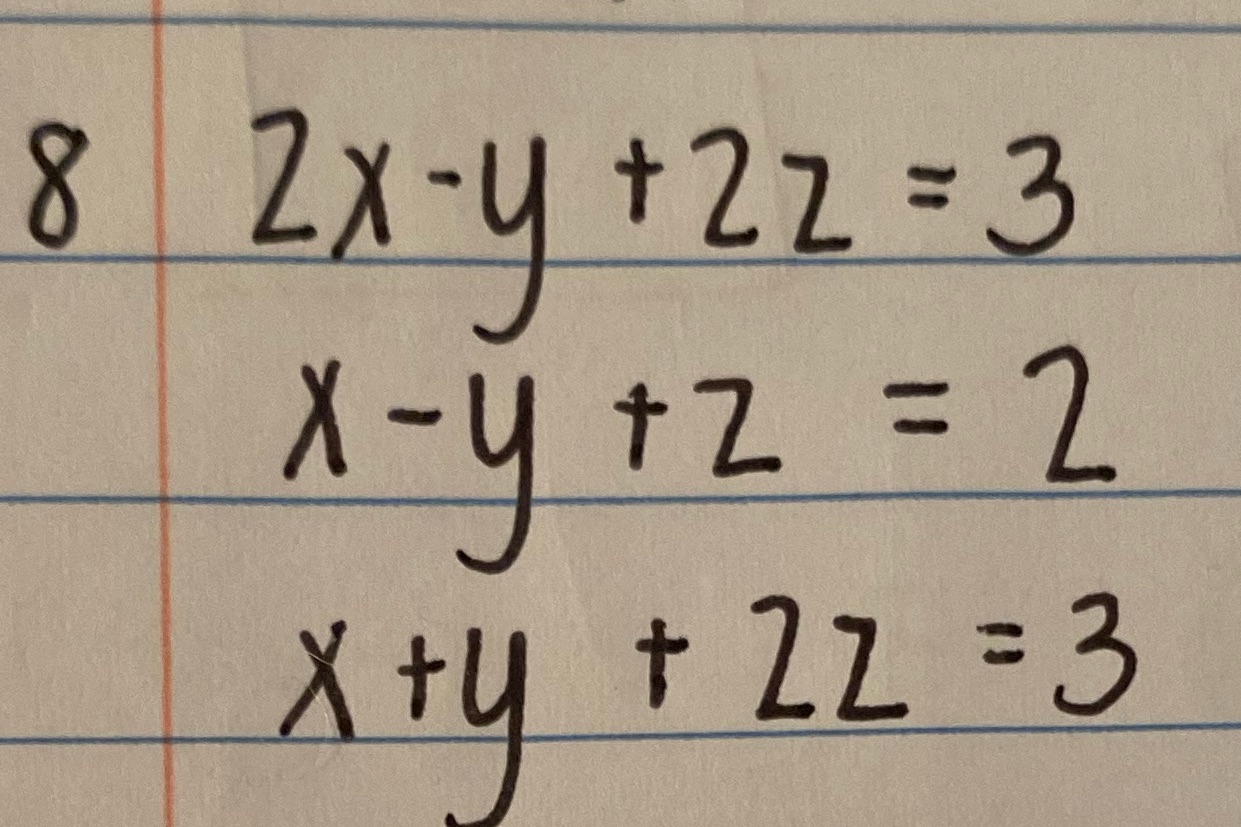 8 2x-y +2z = 3
x-y +z = 2
x+y + 2z = 3